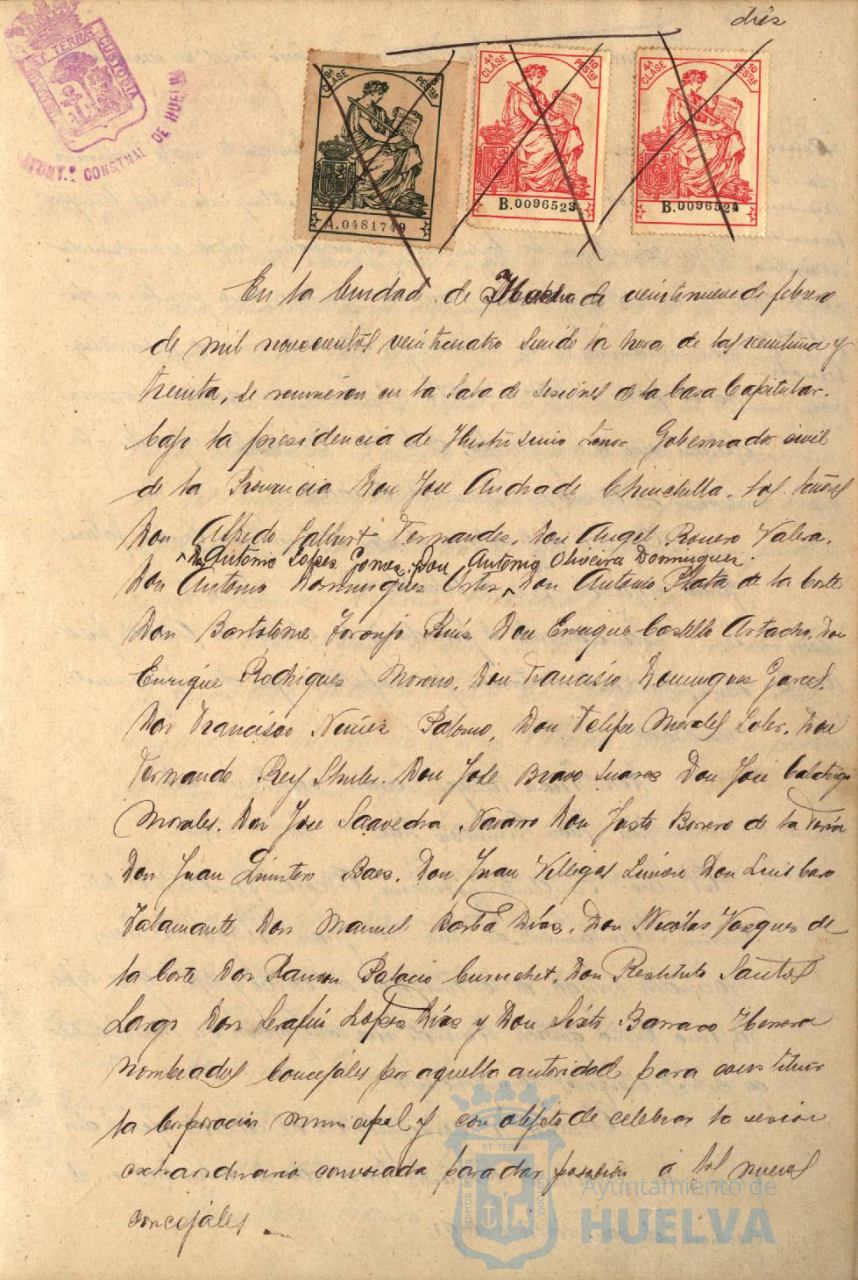 diez
ET TERRÆ CUSTODIA
AYUNTº CONSTNAL DE HUELVA
8ª CLASE PESETAS
A.0481749
4ª CLASE 10 PESTAS
B.0096523
4ª CLASE 10 PESTAS
B.0096524
En la Ciudad de Huelva de veintinueve de febrero
de mil novecientos veinticuatro siendo la hora de las veintiuna y
treinta, se reunieron en la Sala de sesiones de la Casa Capitular.
bajo la presidencia de Ilustrisimo Señor Gobernador civil
de la Provincia Don Jose Andrade Chinchilla. los Señores
Don Alfredo Fernandez, Don Angel Romero Valera,
Don Antonio Lopez Gomez. Don Antonio Oliveira Dominguez.
Don Antonio Dominguez Ortiz Don Antonio Plata de la Corte
Don Bartolome Toronjo Ruiz Don Enrique Castillo Artacho, Don
Enrique Rodriguez Moreno, Don Francisco Dominguez Garcés,
Don Francisco Nuñez Palomo, Don Felipe Morales Soler. Don
Fernando Rey Don Jose Bravo Suarez Don José
Morales. Don Jose Saavedra Navarro Don Justo Borrero de la Feria
Don Juan Quintero Baez. Don Juan Villegas Don Luis Caro
Talamante Don Manuel Barba Díaz. Don Nicolás Vazquez de
la Corte Don Ramon Palacio Don Restituto Santos
Largo Don Serafín Lopez Díaz y Don Sixto Barranco
nombrados Concejales por aquella autoridad para constituir
la Corporacion municipal y con objeto de celebrar la sesion
extraordinaria convocada para dar posesión á los nuevos
concejales.
Ayuntamiento de
HUELVA